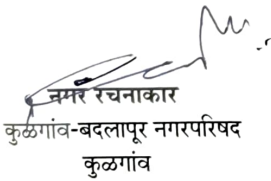 नगर रचनाकार
कुळगांव-बदलापूर नगरपरिषद
कुळगांव